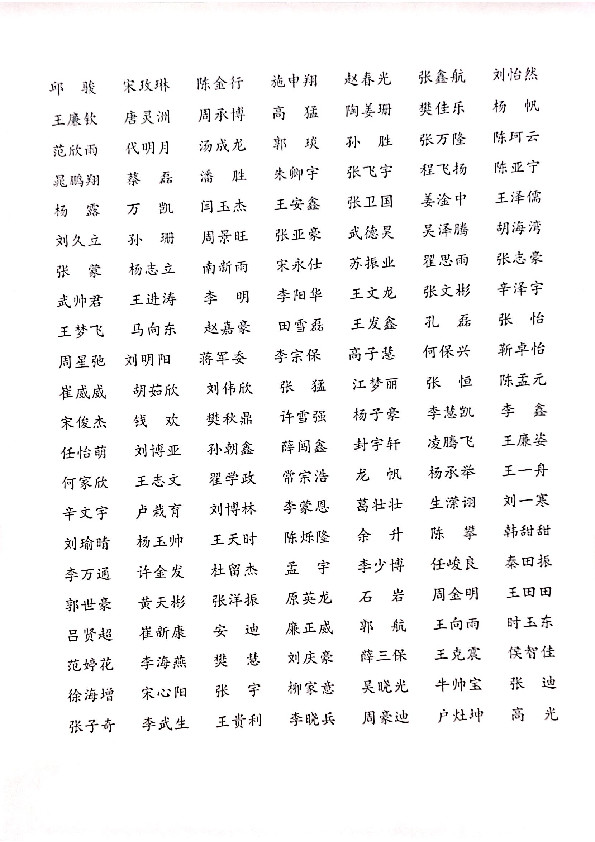 邱　骏　宋玫琳　陈金行　施申翔　赵春光　张鑫航　刘怡然
王廉钦　唐灵洲　周承博　高　猛　陶姜珊　樊佳乐　杨　帆
范欣雨　代明月　汤成龙　郭　琰　孙　胜　张万隆　陈珂云
晁鹏翔　蔡　磊　潘　胜　朱卿宇　张飞宇　程飞扬　陈亚宁
杨　露　万　凯　闫玉杰　王安鑫　张卫国　姜淦中　王泽儒
刘久立　孙　珊　周景旺　张亚豪　武德昊　吴泽腾　胡海湾
张　蒙　杨志立　南新雨　宋永仕　苏振业　翟思雨　张志豪
武帅君　王进涛　李　明　李阳华　王文龙　张文彬　辛泽宇
王梦飞　马向东　赵嘉豪　田雪磊　王发鑫　孔　磊　张　怡
周星弛　刘明阳　蒋军委　李宗保　高子慧　何保兴　靳卓怡
崔威威　胡茹欣　刘伟欣　张　猛　江梦丽　张　恒　陈孟元
宋俊杰　钱　欢　樊秋鼎　许雪强　杨子豪　李慧凯　李　鑫
任怡萌　刘博亚　孙朝鑫　薛闯鑫　封宇轩　凌腾飞　王廉姿
何家欣　王志文　翟学政　常宗浩　龙　帆　杨承举　王一舟
辛文宇　卢莪育　刘博林　李蒙恩　葛壮壮　生潆诩　刘一寒
刘瑜晴　杨玉帅　王天时　陈烁隆　余　升　陈　攀　韩甜甜
李万通　许金发　杜留杰　孟　宇　李少博　任峻良　秦田振
郭世豪　黄天彬　张洋振　原英龙　石　岩　周金明　王田田
吕贤超　崔新康　安　迪　廉正威　郭　航　王向雨　时玉东
范婷花　李海燕　樊　慧　刘庆豪　薛三保　王克震　侯智佳
徐海增　宋心阳　张　宇　柳家意　吴晓光　牛帅宝　张　迪
张子奇　李武生　王贵利　李晓兵　周豪迪　户灶坤　高　光